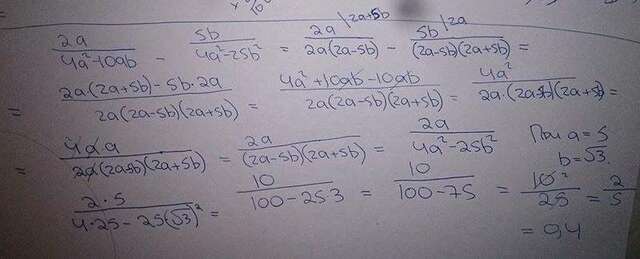 2a/(4a²-10ab) - 5b/(4a²-25b²) = 2a/(2a(2a-5b)) |2a+5b - 5b/((2a-5b)(2a+5b)) |2a =
= (2a(2a+5b)-5b·2a)/(2a(2a-5b)(2a+5b)) = (4a²+10ab-10ab)/(2a(2a-5b)(2a+5b)) = 4a²/(2a·(2a-5b)(2a+5b)) =
= 4a a/(2a(2a-5b)(2a+5b)) = 2a/((2a-5b)(2a+5b)) = 2a/(4a²-25b²) При a=5
b=√3
2·5/(4·25-25(√3)²) = 10/(100-25·3) = 10/(100-75) = 10/25 = 2/5
= 0,4